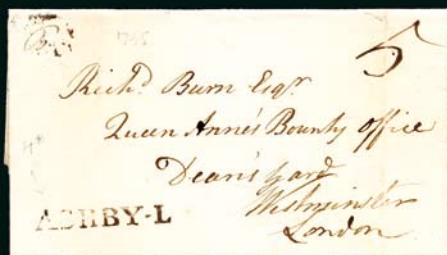 1785
5
Richd. Burn Esqr.
Queen Anne's Bounty Office
Dean's yard
Westminster
London
ASHBY-L